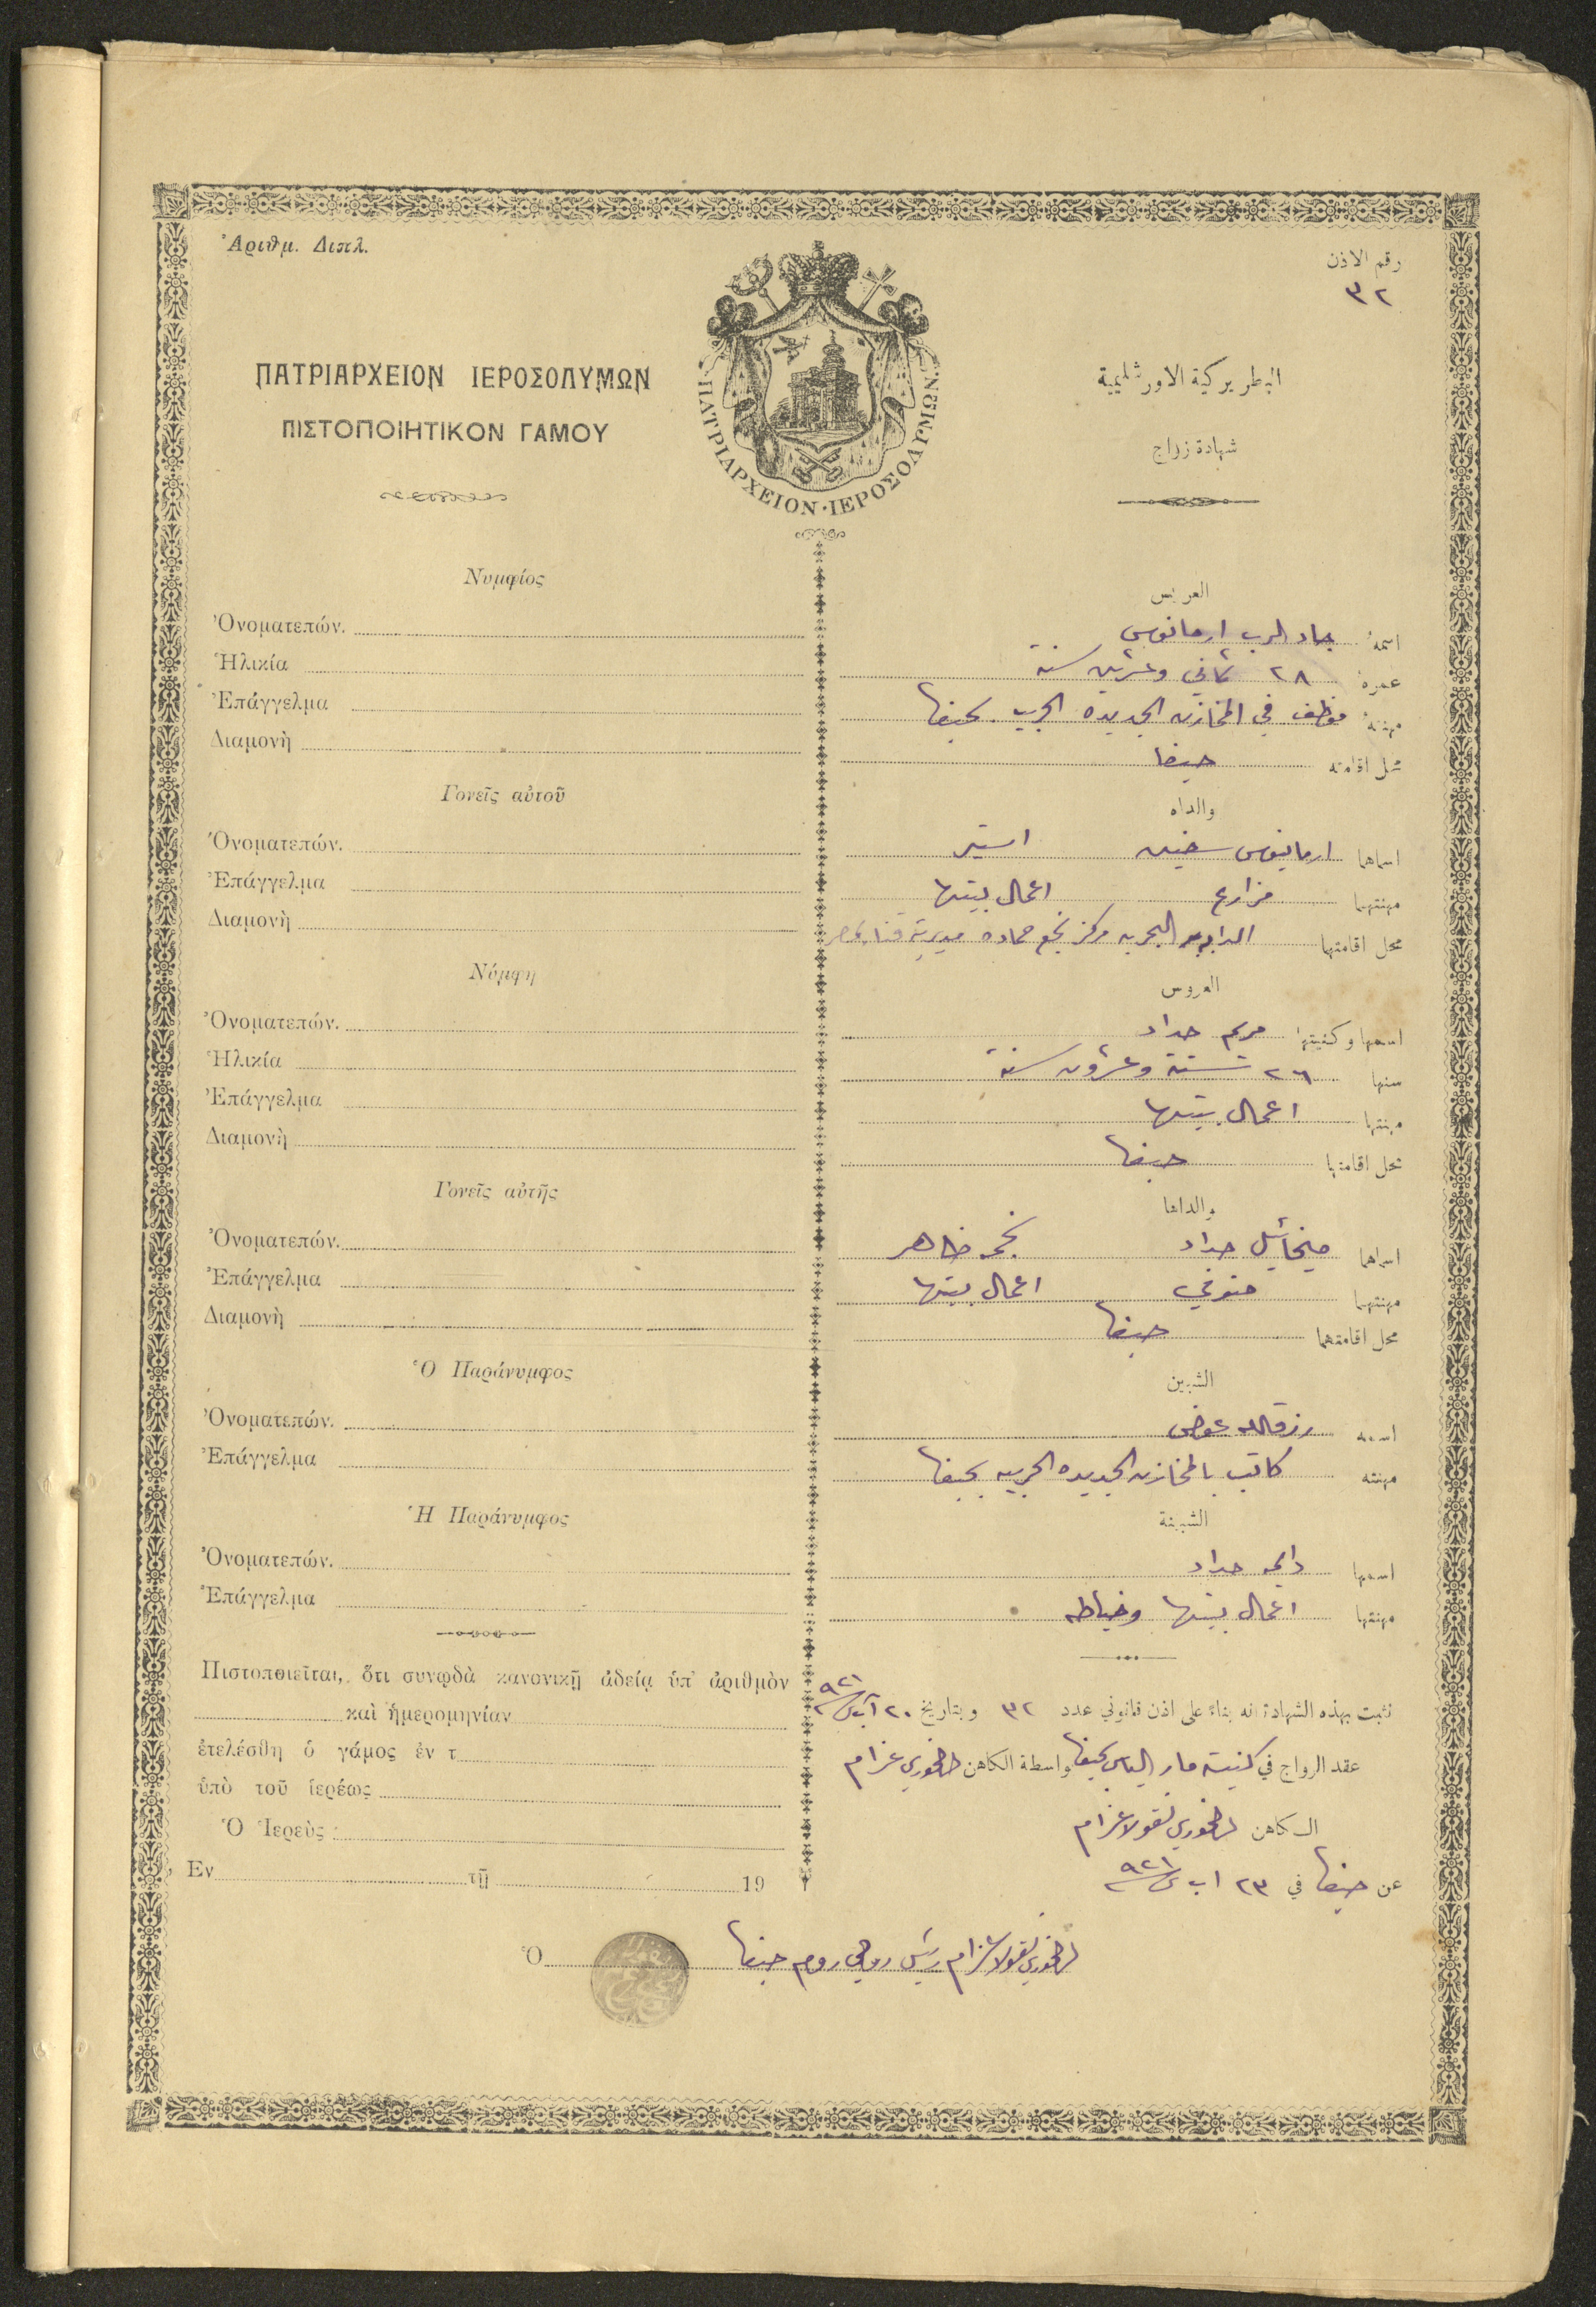 Ἀριθμ. Διπλ.
رقم الاذن
٣٢
ΠΑΤΡΙΑΡΧΕΙΟΝ ΙΕΡΟΣΟΛΥΜΩΝ
ΠΙΣΤΟΠΟΙΗΤΙΚΟΝ ΓΑΜΟΥ
ΠΑΤΡΙΑΡΧΕΙΟΝ·ΙΕΡΟΣΟΛΥΜΩΝ.
البطريركية الاورشليمية
شهادة زواج
Νυμφίος
Ὀνοματεπών.
Ἡλικία
Ἐπάγγελμα
Διαμονὴ
Γονεῖς αὐτοῦ
Ὀνοματεπών.
Ἐπάγγελμα
Διαμονὴ
Νύμφη
Ὀνοματεπών.
Ἡλικία
Ἐπάγγελμα
Διαμονὴ
Γονεῖς αὐτῆς
Ὀνοματεπών.
Ἐπάγγελμα
Διαμονὴ
Ὁ Παράνυμφος
Ὀνοματεπών.
Ἐπάγγελμα
Ἡ Παράνυμφος
Ὀνοματεπών.
Ἐπάγγελμα
Πιστοποιεῖται, ὅτι συνῳδὰ κανονικῇ ἀδείᾳ ὑπ' ἀριθμὸν
καὶ ἡμερομηνίαν
ἐτελέσθη ὁ γάμος ἐν τ
ὑπὸ τοῦ ἱερέως
Ὁ Ἱερεὺς
Ἐν τῇ 19
العريس
اسمهُ جاد الرب ارمانيوس
عمرهُ ٢٨ ثماني وعشرين سنة
مهنتهُ موظف في المخازن الجديدة الحربيه بحيفا
محل اقامته حيفا
والداه
اسماهما ارمانيوس استير
مهنتهما مزارع اعمال بيتها
محل اقامتهما البحريه مركز نجع حماده مديرية قنا بمصر
العروس
اسمها وكنيتها مريم حداد
سنها ٢٦ ستة وعشرون سنة
مهنتها اعمال بيتها
محل اقامتها حيفا
والداها
اسماهما ميخائيل حداد نجمه ظاهر
مهنتهما متوفي اعمال بيتها
محل اقامتهما حيفا
الشبين
اسمه رزقالله عوض
مهنته كاتب بالمخازن الجديده الحربيه بحيفا
الشبينة
اسمها حداد
مهنتها اعمال بيتها وخياطه
نثبت بهذه الشهادة انه بناءً على اذن قانوني عدد ٣٢ وبتاريخ ٢٠ آب ٩٢١
عقد الزواج في كنيسة مار الياس بحيفا بواسطة الكاهن الخوري عزام
الكاهن الخوري نقولا عزام
عن حيفا في ٢٣ اب ٩٢١
Ὁ الخوري نقولا عزام رئيس روحي روم حيفا